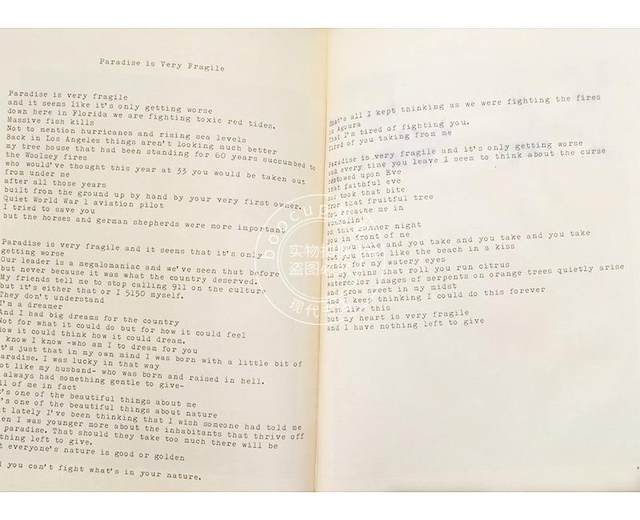 Paradise is Very Fragile
Paradise is very fragile
and it seems like it's only getting worse
down here in Florida we are fighting toxic red tides.
Massive fish kills
Not to mention hurricanes and rising sea levels
Back in Los Angeles things aren't looking much better
my tree house that had been standing for 60 years succumbed to
the Woolsey fires
who would've thought this year at 33 you would be taken out
from under me
after all those years
built from the ground up by hand by your very first owner.
Quiet World War 1 aviation pilot
I tried to save you
but the horses and german shepherds were more important
Paradise is very fragile and it seems that it's only
getting worse
Our leader is a megalomaniac and we've seen that before
but never because it was what the country deserved.
My friends tell me to stop calling 911 on the culture
but it's either that or I 5150 myself.
They don't understand
I'm a dreamer
And I had big dreams for the country
Not for what it could do but for how it could feel
How it could think how it could dream.
know I know -who am I to dream for you
It's just that in my own mind I was born with a little bit of
paradise. I was lucky in that way
not like my husband- who was born and raised in hell.
always had something gentle to give-
all of me in fact
it's one of the beautiful things about me
it's one of the beautiful things about nature
but lately I've been thinking that I wish someone had told me
when I was younger more about the inhabitants that thrive off
paradise. That should they take too much there will be
nothing left to give.
everyone's nature is good or golden
you can't fight what's in your nature.
that's all I kept thinking as we were fighting the fires
in Agoura
that I'm tired of fighting you.
tired of you taking from me
Paradise is very fragile and it's only getting worse
and every time you leave I seem to think about the curse
bestowed upon Eve
that faithful eve
took that bite
that fruitful tree
breathe me in
summer night
you in front of me
and you take and you take and you take and you take
but you taste like the beach in a kiss
for my watery eyes
my veins that roll you run citrus
watercolor images of serpents on orange trees quietly arise
and grow sweet in my midst
and I keep thinking I could do this forever
like this
but my heart is very fragile
and I have nothing left to give
Bookuu
现代